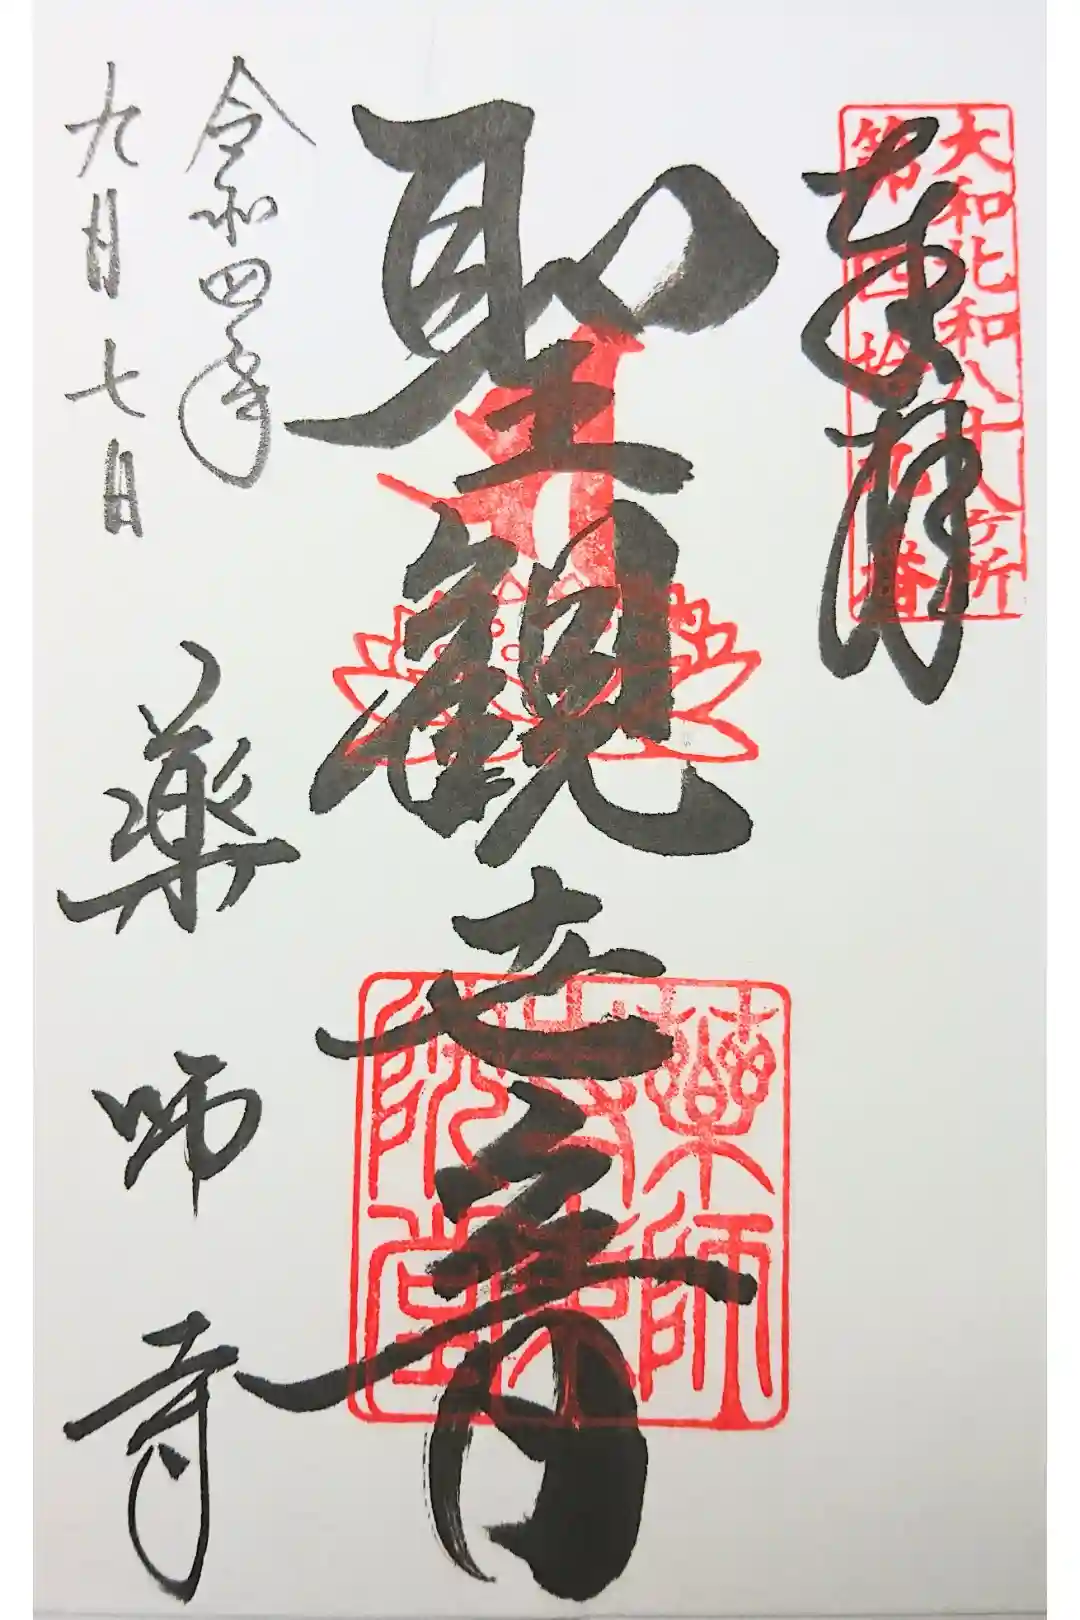 大和北和八十八ヶ所
第四拾九番
奉拝
聖観世音
藥師
寺東
院堂
令和四年
九月七日
薬師寺